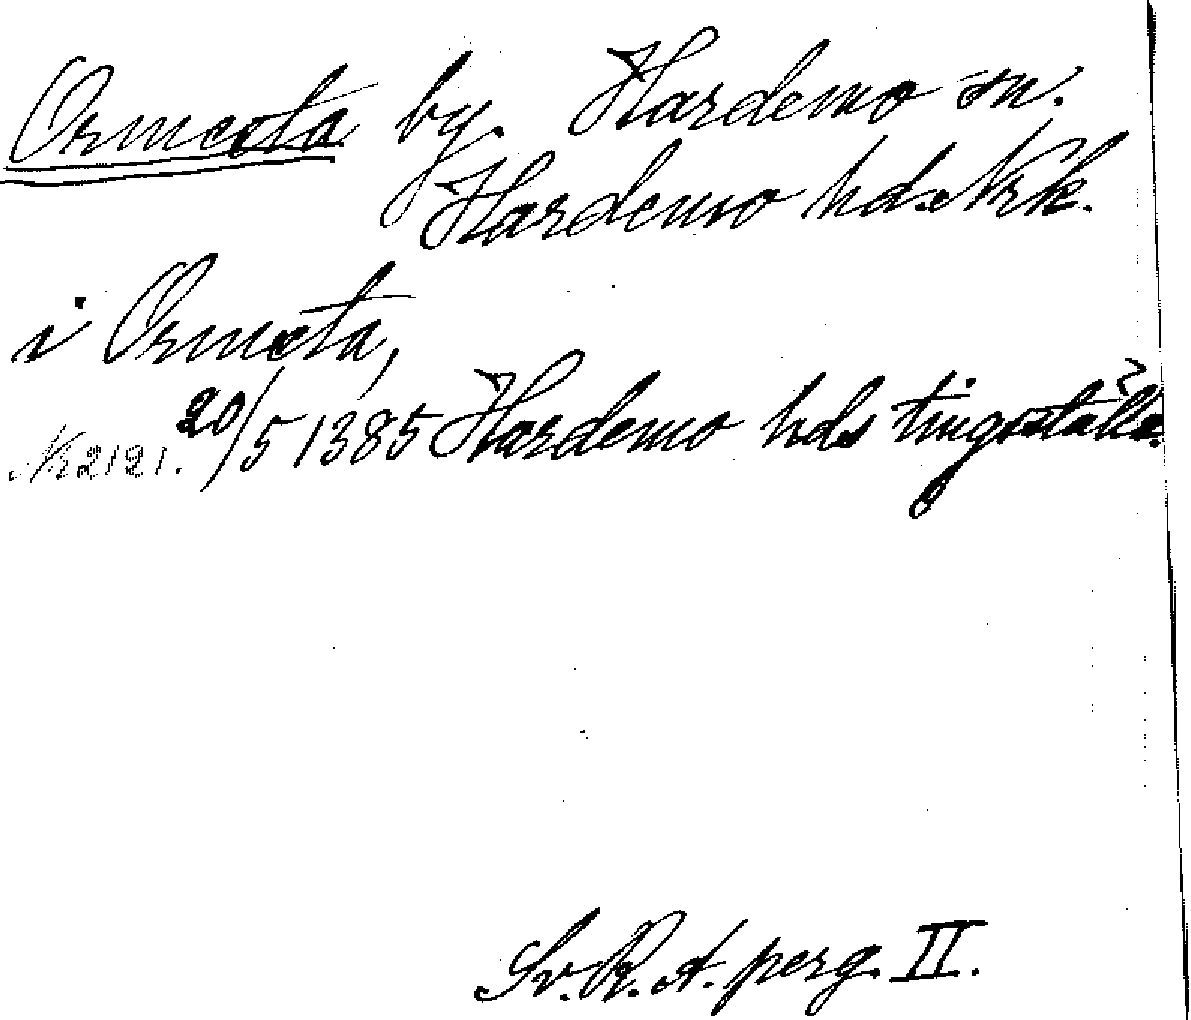 Ormesta by. Hardemo sn.
Hardemo hd. Nrk.
i Ormesta,
Nr 2121. 20/5 1385 Hardemo hds tingställe.
Sv. R. A. perg. II.